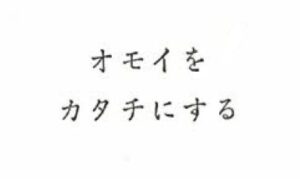 オモイを
カタチにする